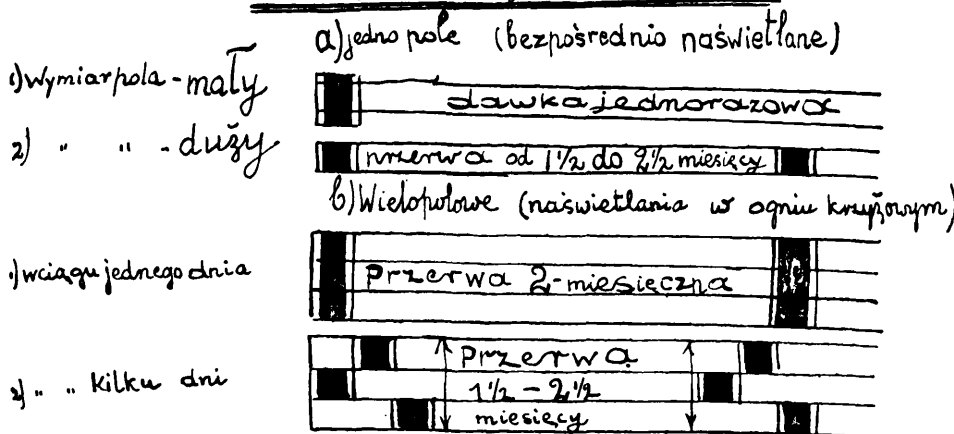 a) jedno pole (bezpośrednio naświetlane)
1) Wymiar pola - mały
dawka jednorazowa
2) " " - duży
przerwa od 1 1/2 do 2 1/2 miesięcy
b) Wielopolowe (naświetlania w ogniu krzyżowym)
1) w ciągu jednego dnia
Przerwa 2-miesięczna
2) " " kilku dni
Przerwa
1 1/2 - 2 1/2
miesięcy